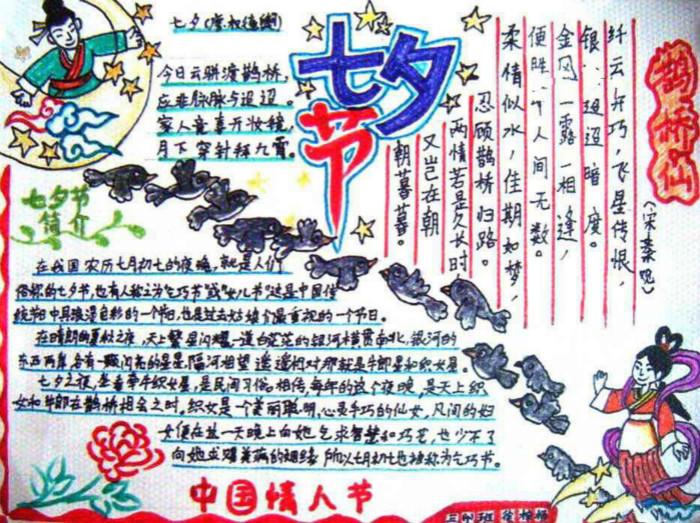 七夕节
七夕(唐.权德舆)
今日云骈渡鹊桥，
应非脉脉与迢迢。
家人竞喜开妆镜，
月下穿针拜九霄。
鹊桥仙
(宋秦观)
纤云弄巧，飞星传恨，
银..迢迢暗度。
金风一露一相逢，
便胜 人间无数。
柔情似水，佳期如梦，
忍顾鹊桥归路。
两情若是久长时
又岂在朝
朝暮暮。
七夕节
简介
在我国农历七月初七的夜晚，就是人们
俗称的七夕节，也有人称之为"乞巧节"或"女儿节"这是中国传
统节日中具浪漫色彩的一个节日，也是过去姑娘们最重视的一个节日。
在晴朗的夏秋之夜，天上繁星闪耀一道白茫茫的银河横贯南北，银河的
东西两岸，各有一颗闪亮的星星，隔河相望遥遥相对那就是牛郎星和织女星。
七夕之夜，坐看牵牛织女星，是民间习俗。相传，每年的这个夜晚，是天上织
女和牛郎在鹊桥相会之时，织女是一个美丽聪明，心灵手巧的仙女，凡间的妇
女便在这一天晚上向她乞求智慧和巧艺，也少不了
向她求赐美满的姻缘 所以七月初七也被称为乞巧节。
中国情人节
班